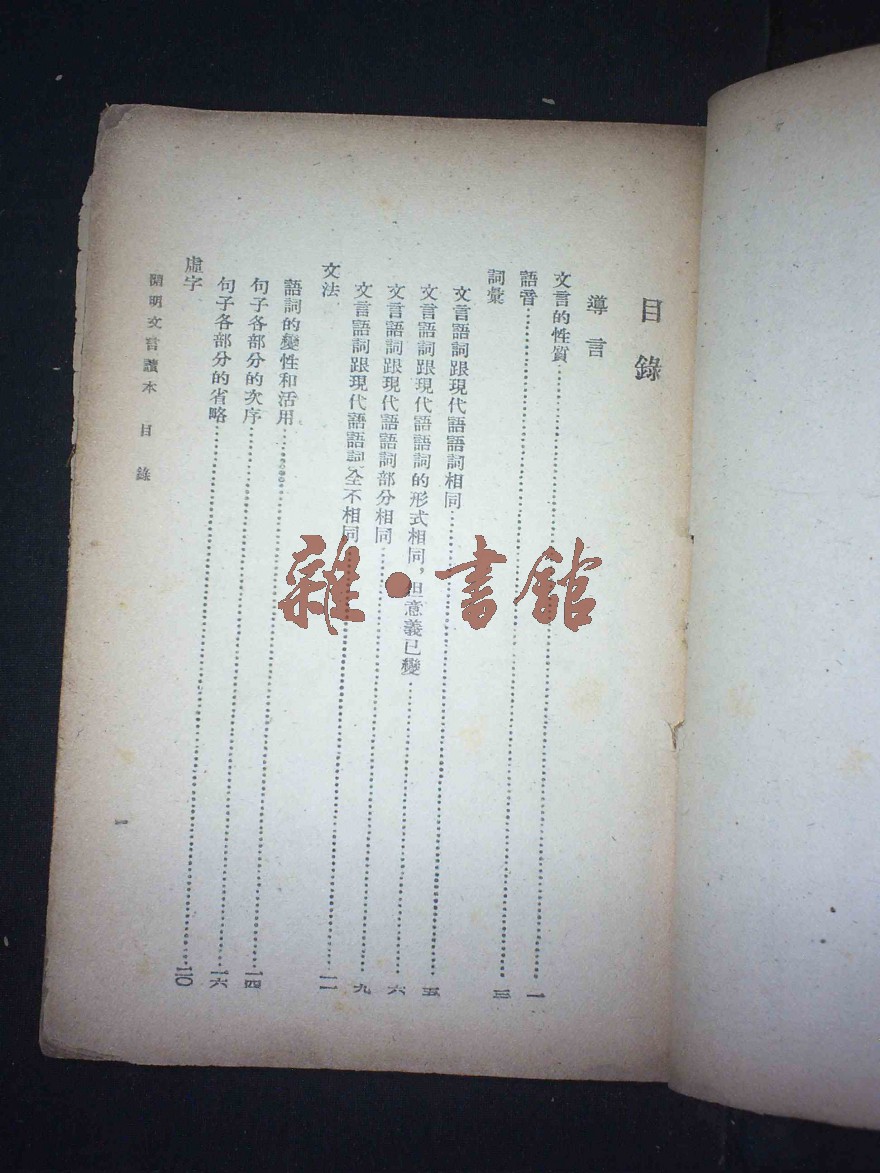 目錄
導言
文言的性質⋯⋯一
語音⋯⋯三
詞彙
文言語詞跟現代語語詞相同⋯⋯五
文言語詞跟現代語語詞的形式相同，但意義已變⋯⋯六
文言語詞跟現代語語詞部分相同⋯⋯九
文言語詞跟現代語語詞全不相同⋯⋯一一
文法
語詞的變性和活用⋯⋯一四
句子各部分的次序⋯⋯一六
句子各部分的省略⋯⋯二〇
虛字
開明文言讀本 目錄
一
雜·書館